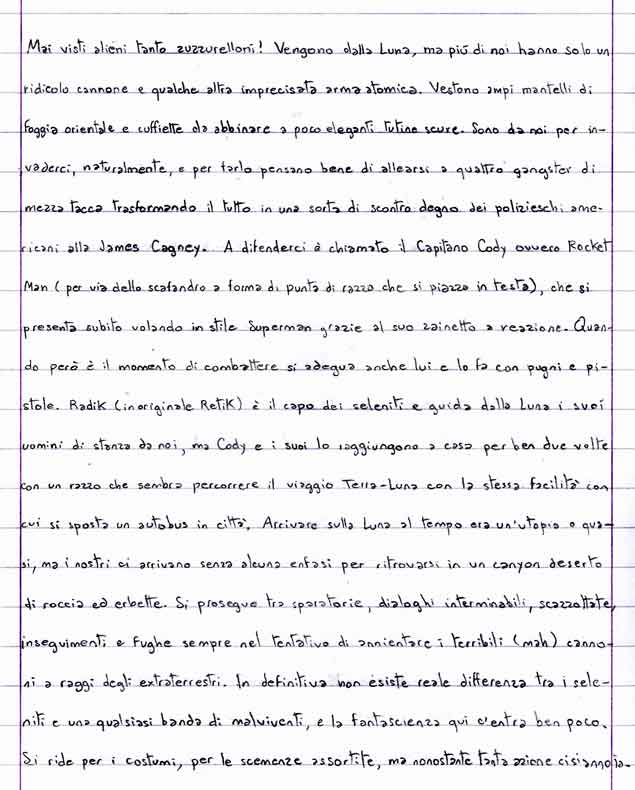 Mai visti alieni tanto zuzzurelloni! Vengono dalla Luna, ma più di noi hanno solo un
ridicolo cannone e qualche altra imprecisata arma atomica. Vestono ampi mantelli di
foggia orientale e cuffiette da abbinare a poco eleganti tutine scure. Sono da noi per in-
vaderci, naturalmente, e per farlo pensano bene di allearsi a quattro gangster di
mezza tacca trasformando il tutto in una sorta di scontro degno dei polizieschi ame-
ricani alla James Cagney. A difenderci è chiamato il Capitano Cody ovvero Rocket
Man (per via dello scafandro a forma di punta di razzo che si piazza in testa), che si
presenta subito volando in stile Superman grazie al suo zainetto a reazione. Quan-
do però è il momento di combattere si adegua anche lui e lo fa con pugni e pi-
stole. Radik (in originale Retik) è il capo dei seleniti e guida dalla Luna i suoi
uomini di stanza da noi, ma Cody e i suoi lo raggiungono a casa per ben due volte
con un razzo che sembra percorrere il viaggio Terra-Luna con la stessa facilità con
cui si sposta un autobus in città. Arrivare sulla Luna al tempo era un'utopia o qua-
si, ma i nostri ci arrivano senza alcuna enfasi per ritrovarsi in un canyon deserto
di roccia ed erbette. Si prosegue tra sparatorie, dialoghi interminabili, scazzottate,
inseguimenti e fughe sempre nel tentativo di annientare i terribili (mah) canno-
ni a raggi degli extraterrestri. In definitiva non esiste reale differenza tra i sele-
niti e una qualsiasi banda di malviventi, e la fantascienza qui c'entra ben poco.
Si ride per i costumi, per le scemenze assortite, ma nonostante tanta azione ci si annoia.